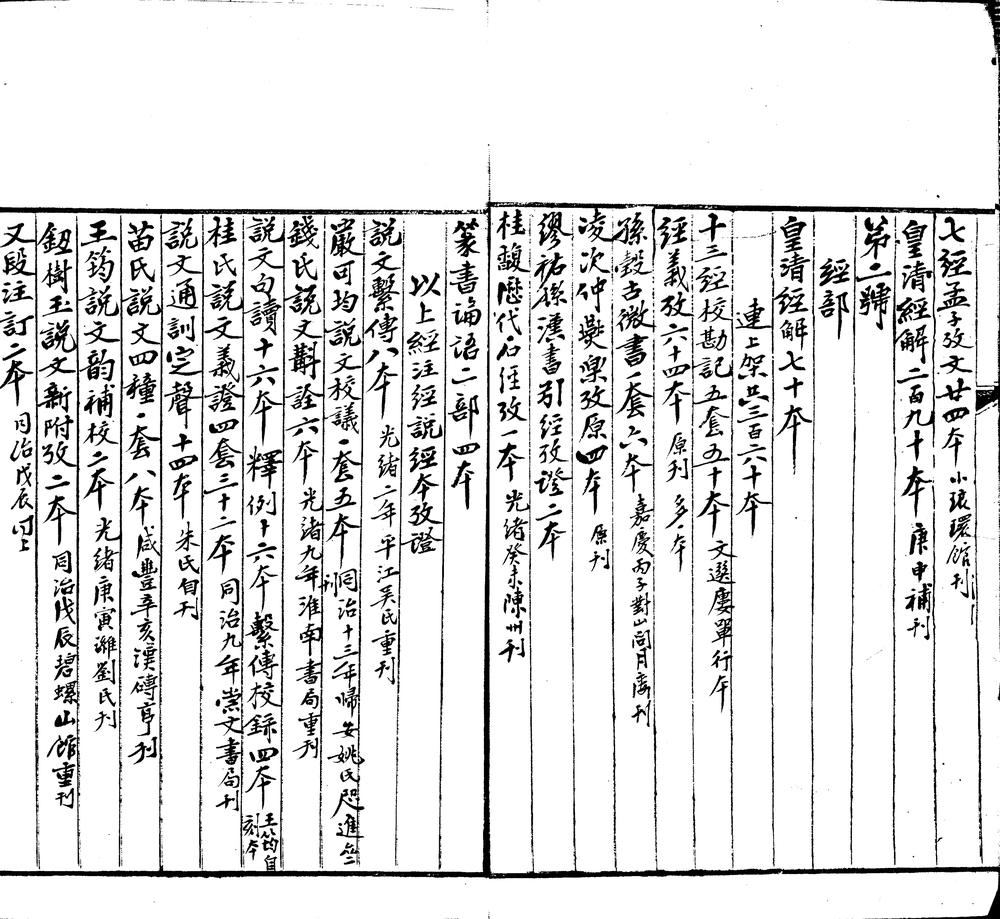 七經孟子攷文廿四本 小琅環館刊
皇清經解二百九十本 庚申補刊
第二號
經部
皇清經解七十本
連上架共三百六十本
十三經校勘記五套五十本 文選廔單行本
經義攷六十四本 原刊 多一本
孫瑴古微書一套六本 嘉慶丙子對山問月廔刊
凌次仲燕樂攷原四本 原刊
繆祐孫漢書引經攷證二本
桂馥歷代石經攷一本 光緒癸未陳州刊
篆書論語二部四本
以上經注經說經本攷證
說文繫傳八本 光緒二年平江吴氏重刊
嚴可均說文校議一套五本 同治十三年歸安姚氏咫進齋刊
錢氏說文斠詮六本 光緒九年淮南書局重刊
說文句讀十六本 釋例十六本 繫傳校録四本 王筠自刻本
桂氏說文義證四套三十二本 同治九年崇文書局刊
說文通訓定聲十四本 朱氏自刊
苗氏說文四種一套八本 咸豐辛亥漢磚亭刊
王筠說文韵補校二本 光緒庚寅濰劉氏刊
鈕樹玉說文新附攷二本 同治戊辰碧螺山館重刊
又段注訂二本 同治戊辰同上